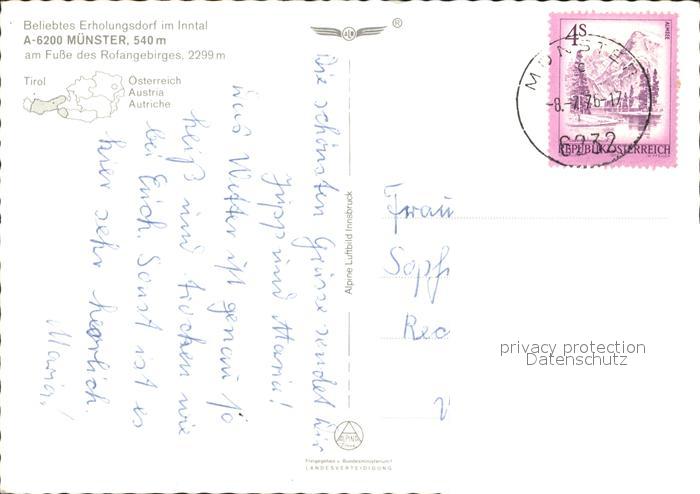 Beliebtes Erholungsdorf im Inntal
A-6200 MÜNSTER, 540 m
am Fuße des Rofangebirges, 2299 m
Tirol
Österreich
Austria
Autriche
®
4s
ALMSEE
REPUBLIK ÖSTERREICH
MÜNSTER
-8.-7.76-17
6232
Die schönsten Grüsse sendet Dir
und Maria!
Das Wetter ist genau so
heiß und trocken wie
bei Euch. Sonst ist es
hier sehr herrlich.
Maria!
Alpine Luftbild Innsbruck
Frau
Soph
Rec
privacy protection
Datenschutz
ALPINE
Freigegeben v. Bundesministerium f.
LANDESVERTEIDIGUNG